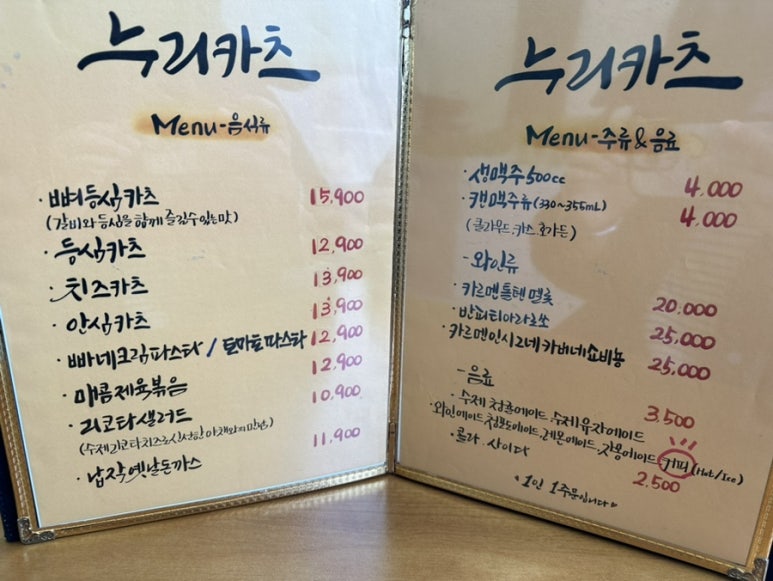 누리카츠
Menu-음식류
·뼈등심카츠 15,900
(갈비와 등심을 함께 즐길수있는맛)
·등심카츠 12,900
·치즈카츠 13,900
·안심카츠 13,900
·빠네크림파스타 / 토마토파스타 12,900
·매콤제육볶음 12,900
·리코타샐러드 10,900
(수제리코타치즈와신선한 야채와의만남)
·납작옛날돈까스 11,900
누리카츠
Menu-주류&음료
·생맥주500cc 4,000
·캔맥주류(330~355mL) 4,000
(클라우드.카스.호가든)
-와인류
·카르멘톨텐멜롯 20,000
·반피티아라로쏘 25,000
·카르멘인시그네카버네쇼비뇽 25,000
-음료
·수제청귤에이드.수제유자에이드 3,500
·와인에이드.청포도에이드.레몬에이드.자몽에이드.커피(Hot/Ice)
·콜라.사이다 2,500
1인 1주문입니다